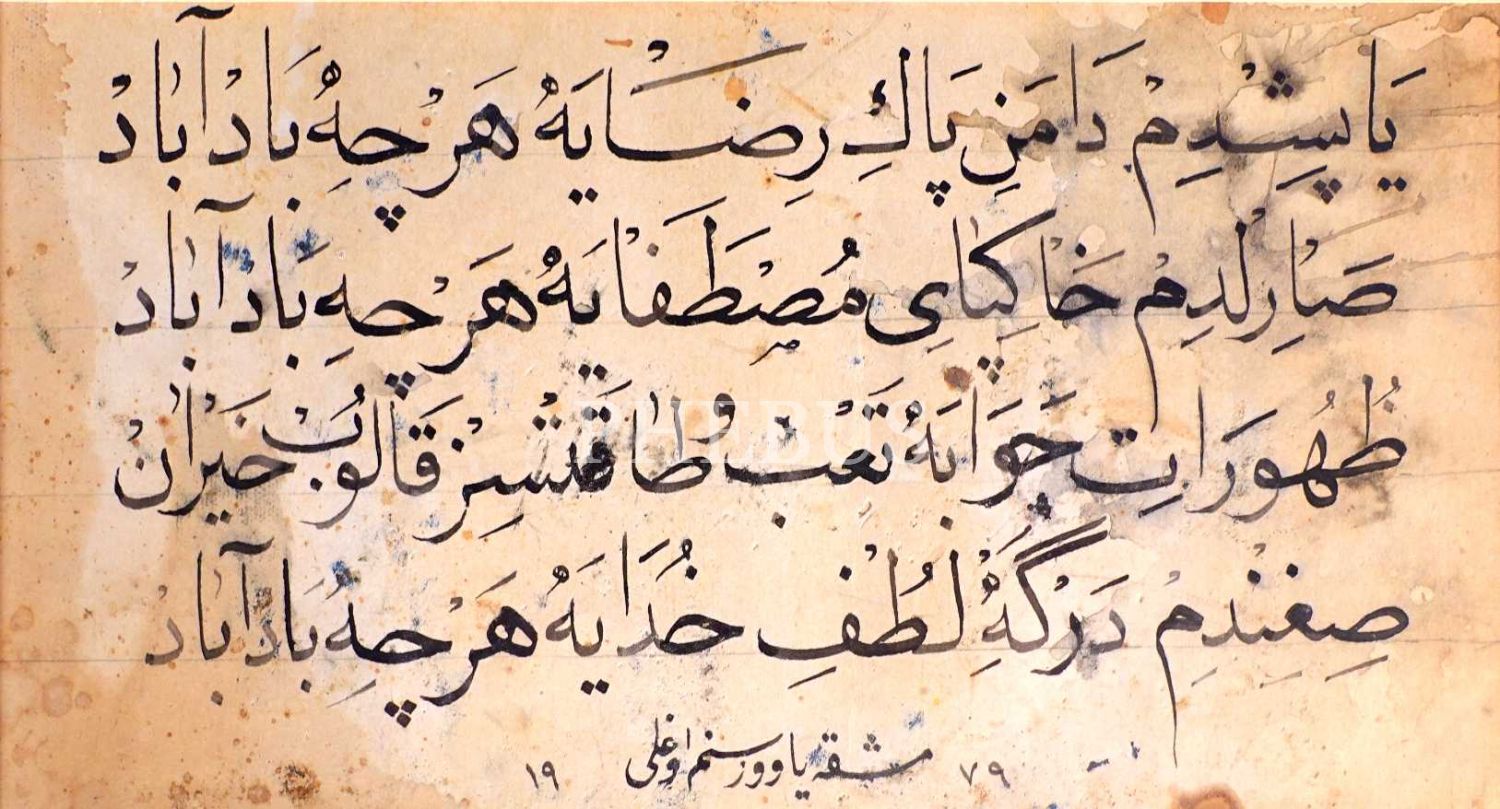 یاپِشِدِمْ دَامَنِ پَاكِ رِضَایَهْ هَرْ چِهْ بَادْ آبَادْ
صَارِلْدِمْ خَاكِپَایِ مُصْطَفَایَهْ هَرْ چِهْ بَادْ آبَادْ
ظُهُورَاتِ جَوَابَهْ تَعَبْ طَاقَتْسِزْ قَالُوبْ حَيْرَانْ
صِغِنْدِمْ دَرْگَهِ لُطْفِ خُدَایَهْ هَرْ چِهْ بَادْ آبَادْ
مشقه یاووز رستم اوغلی
١٩ ٧٩
PHEBUS